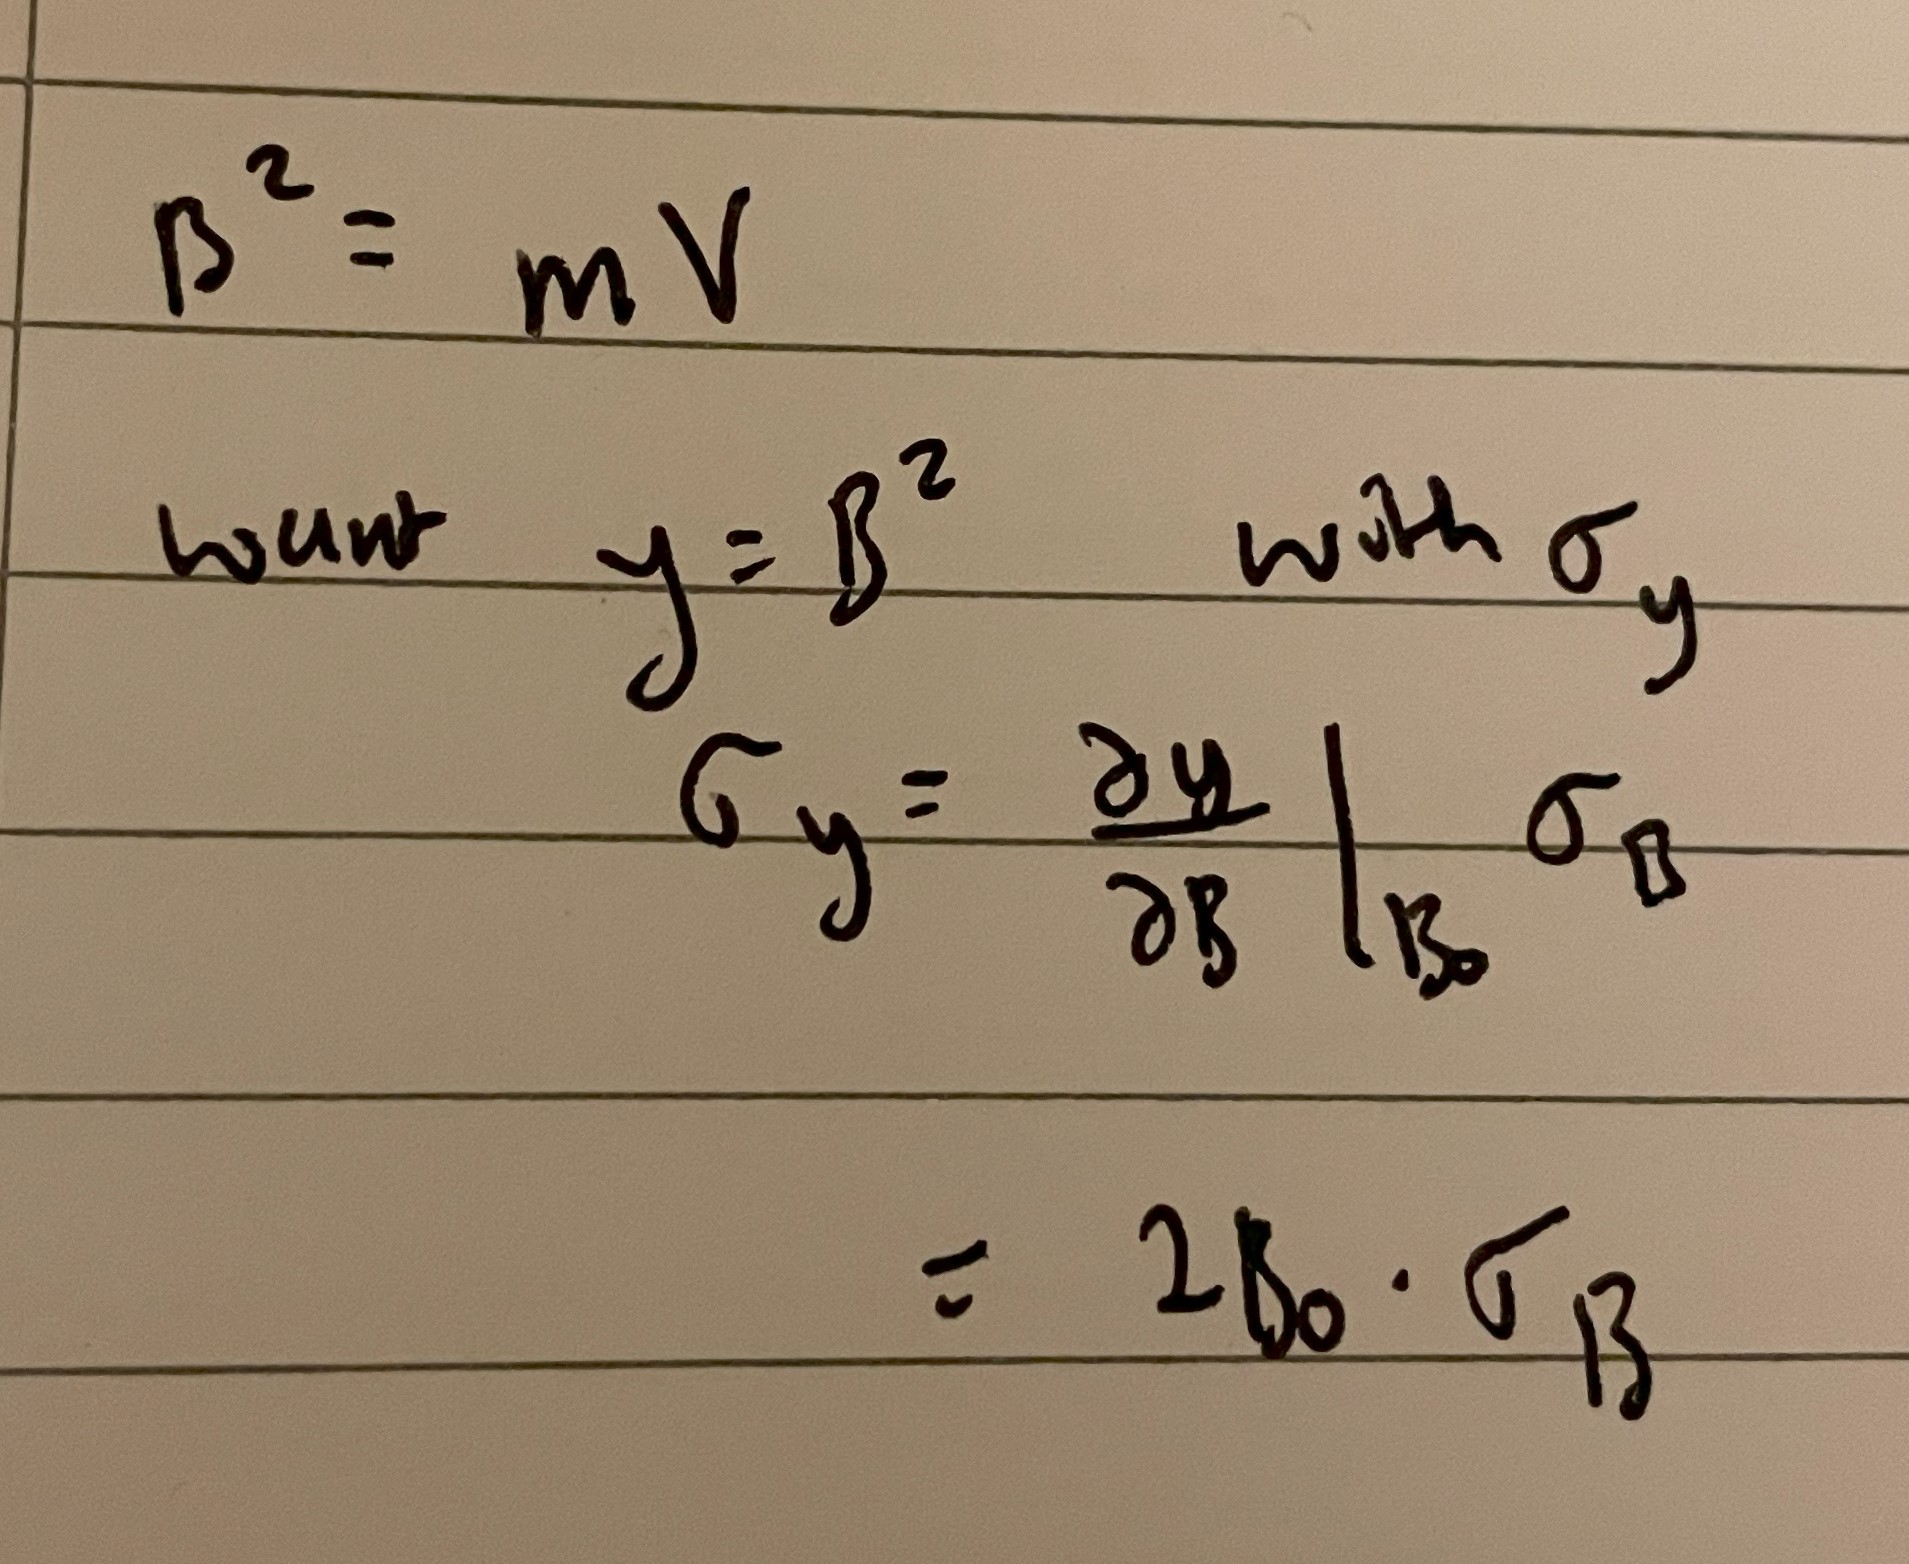 B² = mV
want y = B² with σ_y
σ_y = ∂y/∂B |_B₀ σ_B
= 2B₀ · σ_B